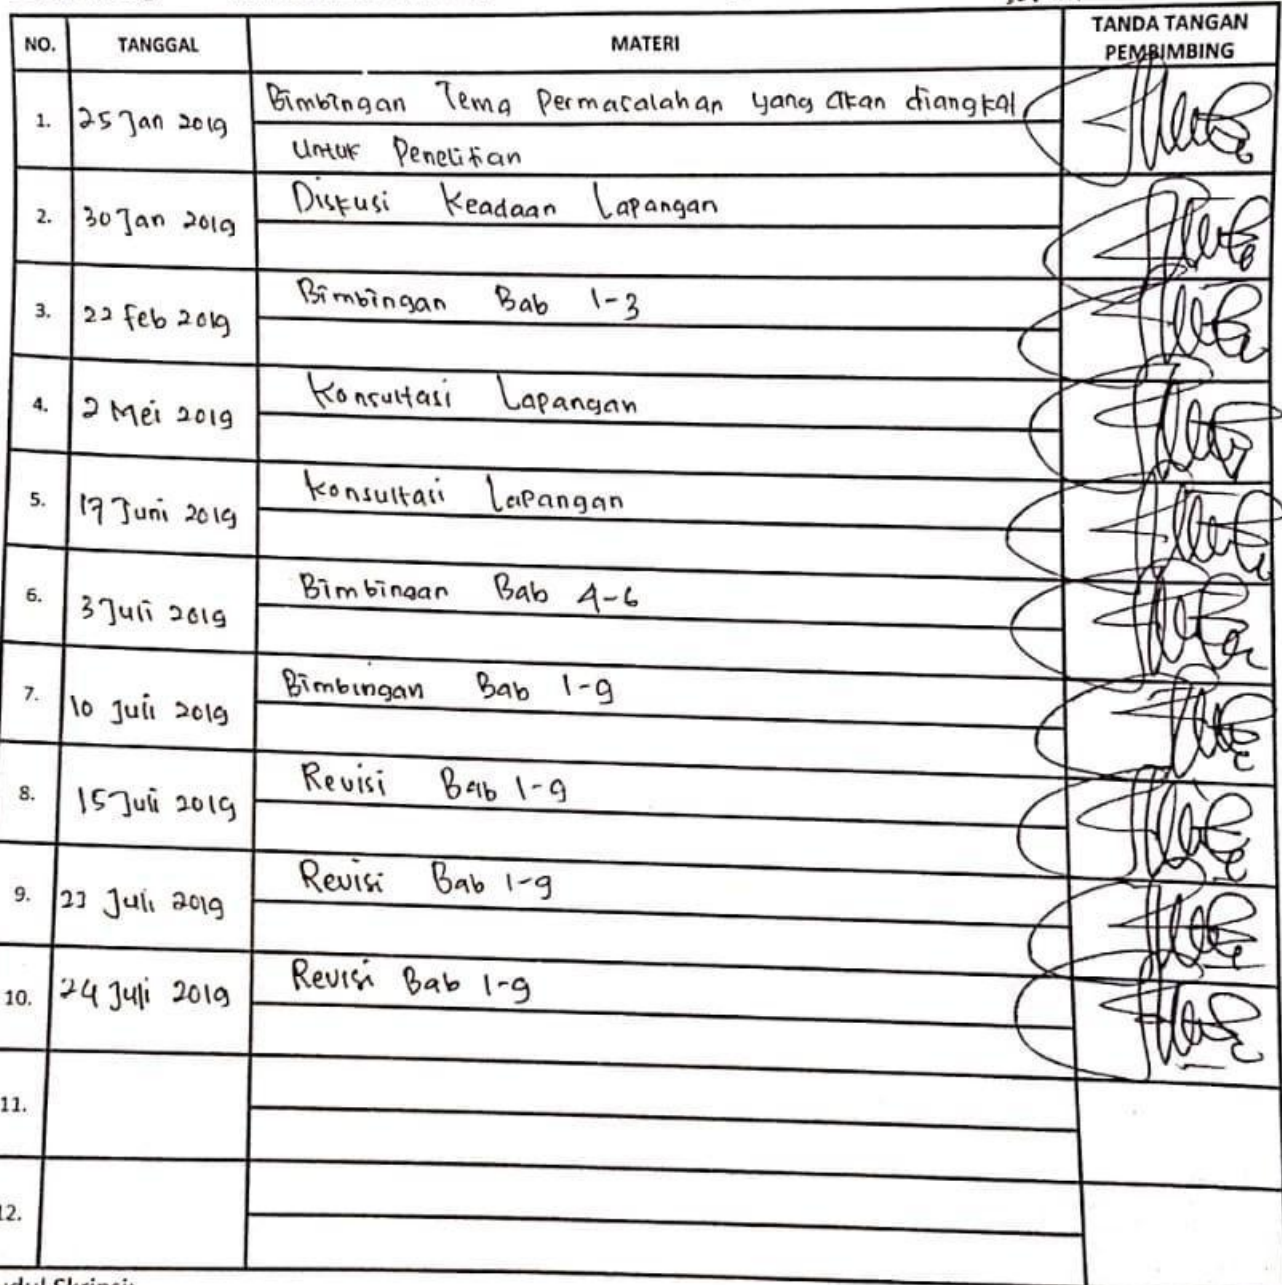 NO. TANGGAL MATERI TANDA TANGAN
PEMBIMBING
1. 25 Jan 2019 Bimbingan Tema Permasalahan yang akan diangkat
untuk Penelitian
2. 30 Jan 2019 Diskusi Keadaan Lapangan
3. 22 Feb 2019 Bimbingan Bab 1-3
4. 2 Mei 2019 Konsultasi Lapangan
5. 17 Juni 2019 Konsultasi Lapangan
6. 3 Juli 2019 Bimbingan Bab 4-6
7. 10 Juli 2019 Bimbingan Bab 1-9
8. 15 Juli 2019 Revisi Bab 1-9
9. 23 Juli 2019 Revisi Bab 1-9
10. 24 Juli 2019 Revisi Bab 1-9
11.
12.